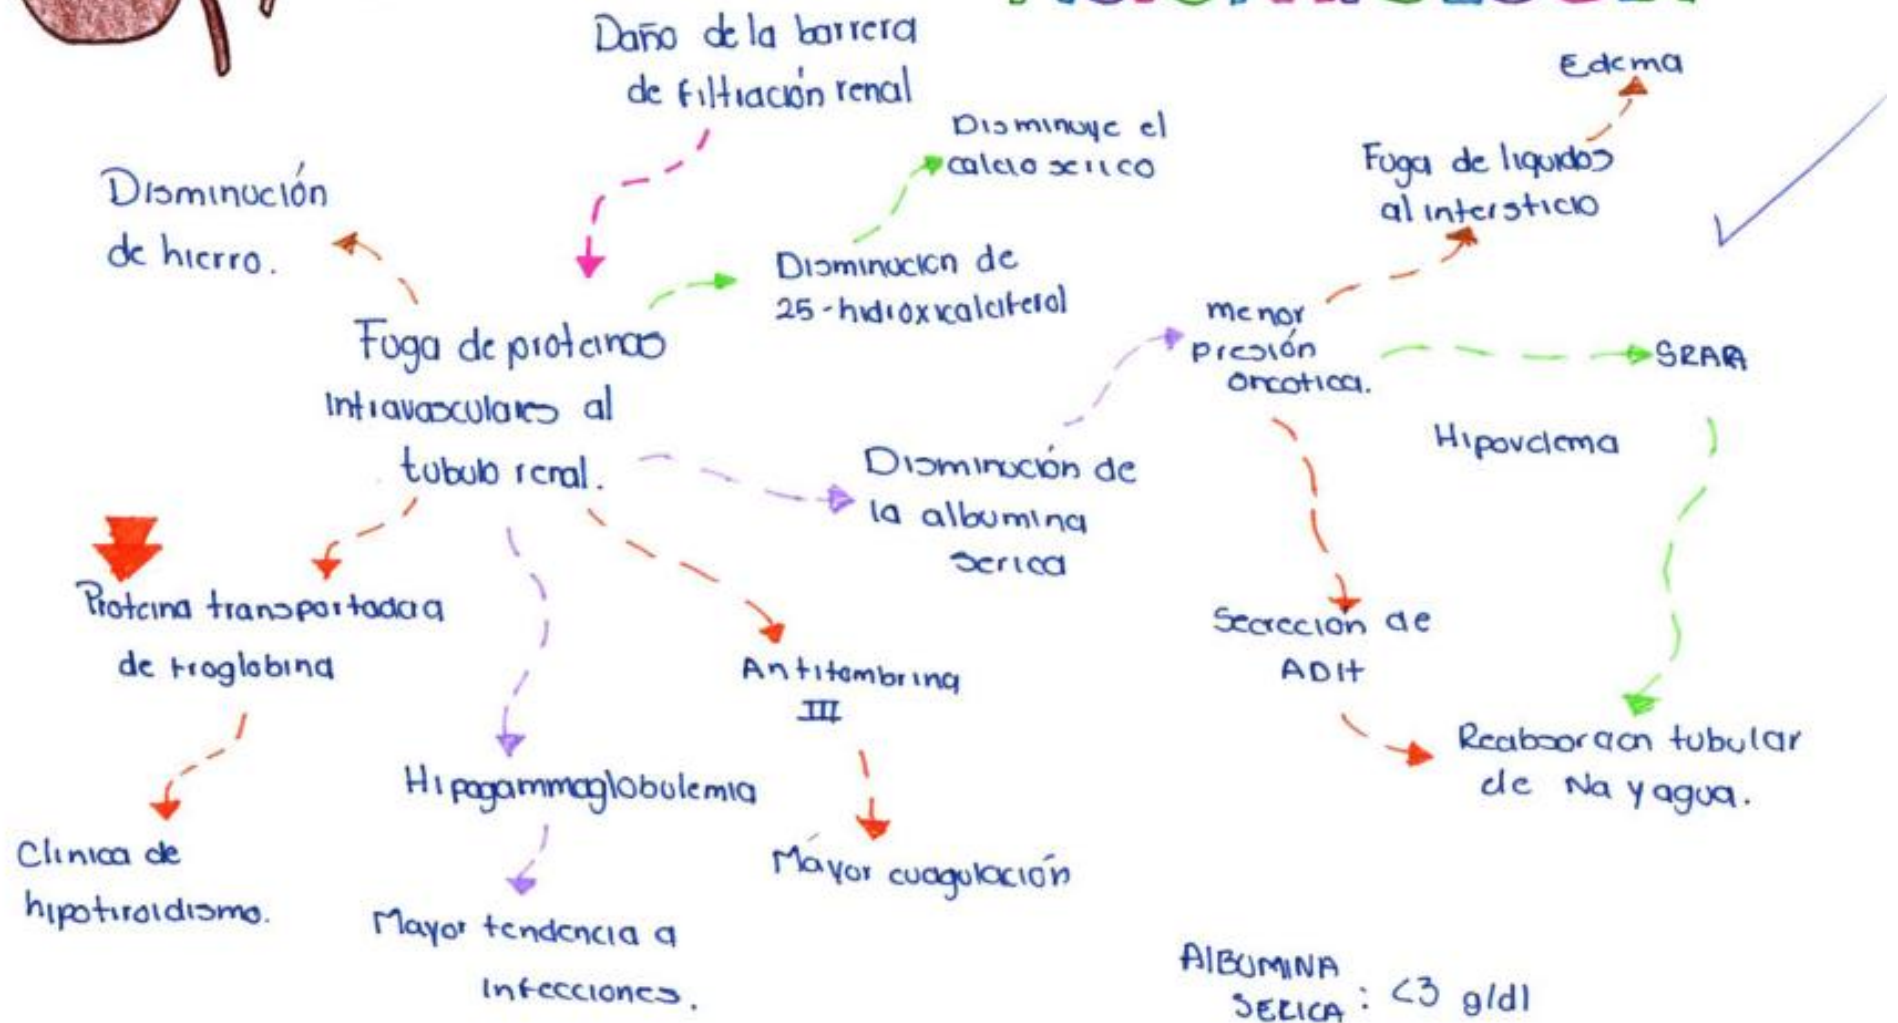 Daño de la barrera
de filtración renal
Edema
Disminuye el
calcio serico
Fuga de liquidos
al intersticio
Disminución
de hierro.
Disminucion de
25-hidroxicalciferol
menor
presión
oncotica.
Fuga de proteinas
intravasculares al
tubulo renal.
SRAA
Hipovolemia
Disminución de
la albumina
serica
Proteina transportadora
de troglobina
Antitombrina
III
Secrecion de
ADH
Reabsorcion tubular
de Na y agua.
Hipogammaglobulemia
Mayor cuagulación
Clinica de
hipotiroidismo.
Mayor tendencia a
infecciones.
AlBUMINA
SERICA : <3 g/dl